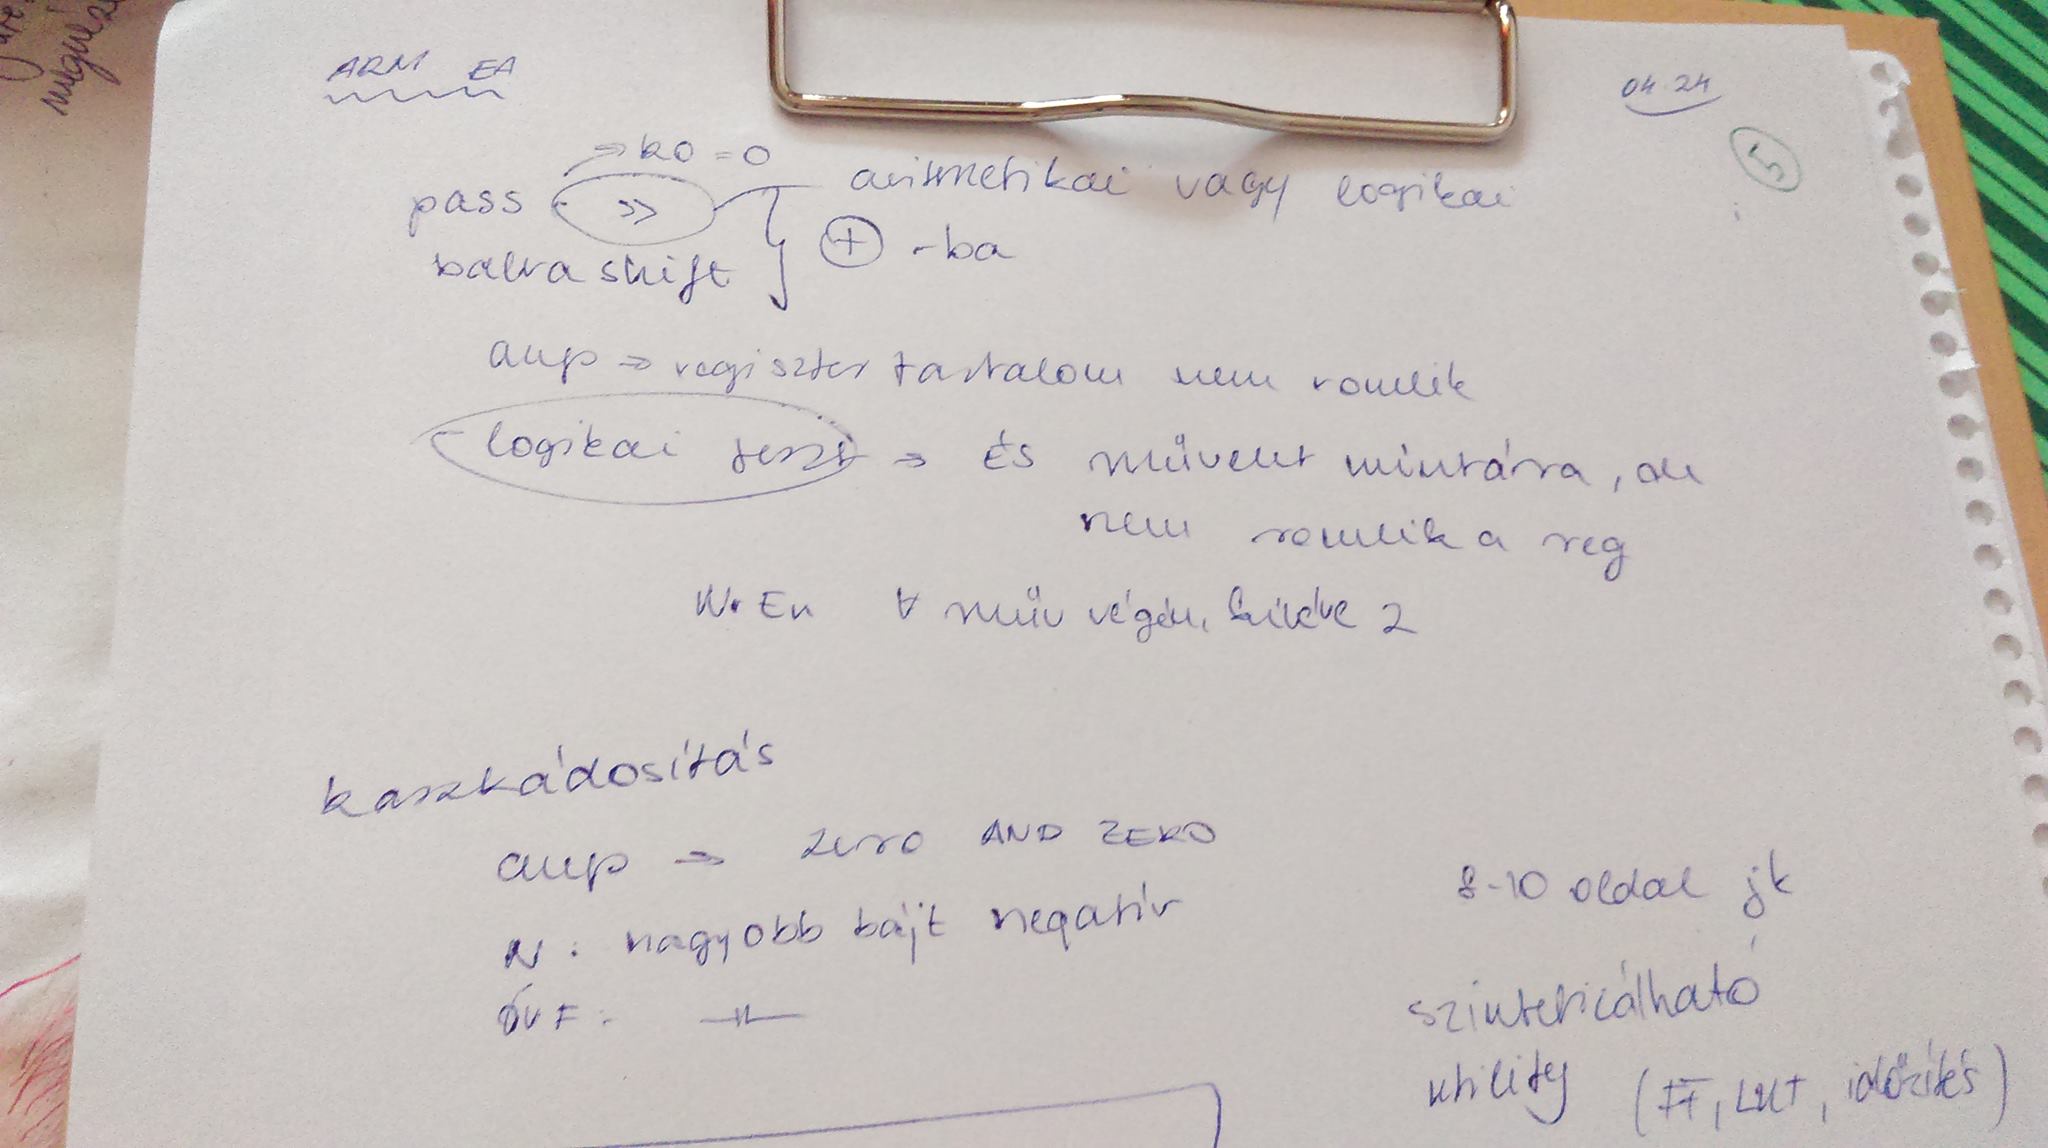 ARM EA
04.24
5
⇒ k0 = 0
pass >> aritmetikai vagy logikai
balra shift } ⊕ -ba
cmp ⇒ regiszter tartalom nem romlik
logikai teszt ⇒ ÉS művelet mintára, de
nem romlik a reg
Wr En ∀ műv végén, kivéve 2
kaszkádosítás
cmp ⇒ zero AND ZERO
N: nagyobb bájt negatív
OVF: —||—
8-10 oldal jk
szintetizálható
utility (FF, LUT, időzítés)